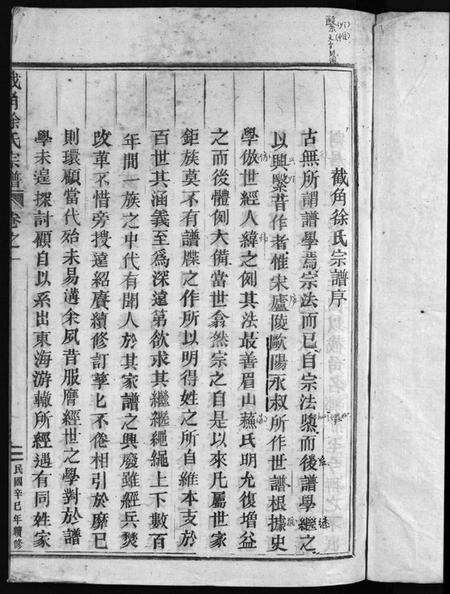 截角徐氏宗譜序
古無所謂譜學焉宗法而已自宗法隳而後譜學繼之
以興繄昔作者惟宋廬陵歐陽永叔所作世譜根據史
學倣世經人緯之例其法最善眉山蘇氏明允復增益
之而後體例大備當世翕然宗之自是以來凡屬世家
鉅族莫不有譜牒之作所以明得姓之所自維本支於
百世其涵義至為深遠第欲求其繼繼繩繩上下數百
年間一族之中代有聞人於其家譜之興廢雖經兵燹
改革不惜旁搜遠紹賡續修訂孳匕不倦相引於靡已
則環顧當代殆未易遘余夙昔服膺經世之學對於譜
學未遑探討顧自以系出東海游轍所經遇有同姓家
截角徐氏宗譜
卷之一
民國辛巳年續修